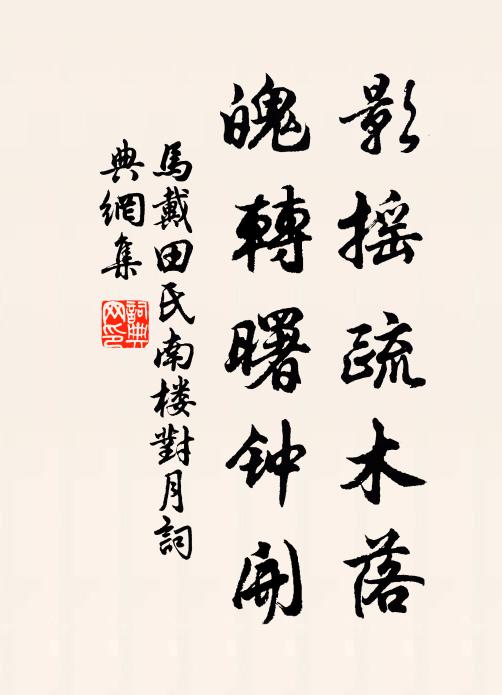 影摇疏木落
魄轉曙钟開
馬戴田氏南楼對月詞
典網集
詞典
网印